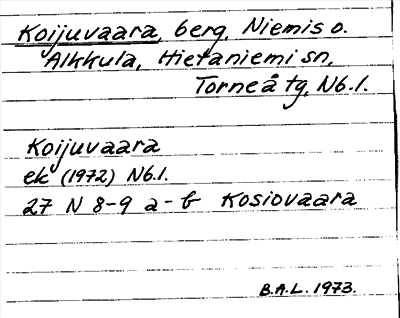 Koijuvaara, berg, Niemis o.
Alkkula, Hietaniemi sn,
Torneå tg, Nb.l.
Koijuvaara
ek (1972) Nb.l.
27 N 8-9 a-b Kosiovaara
B.A.L. 1973.